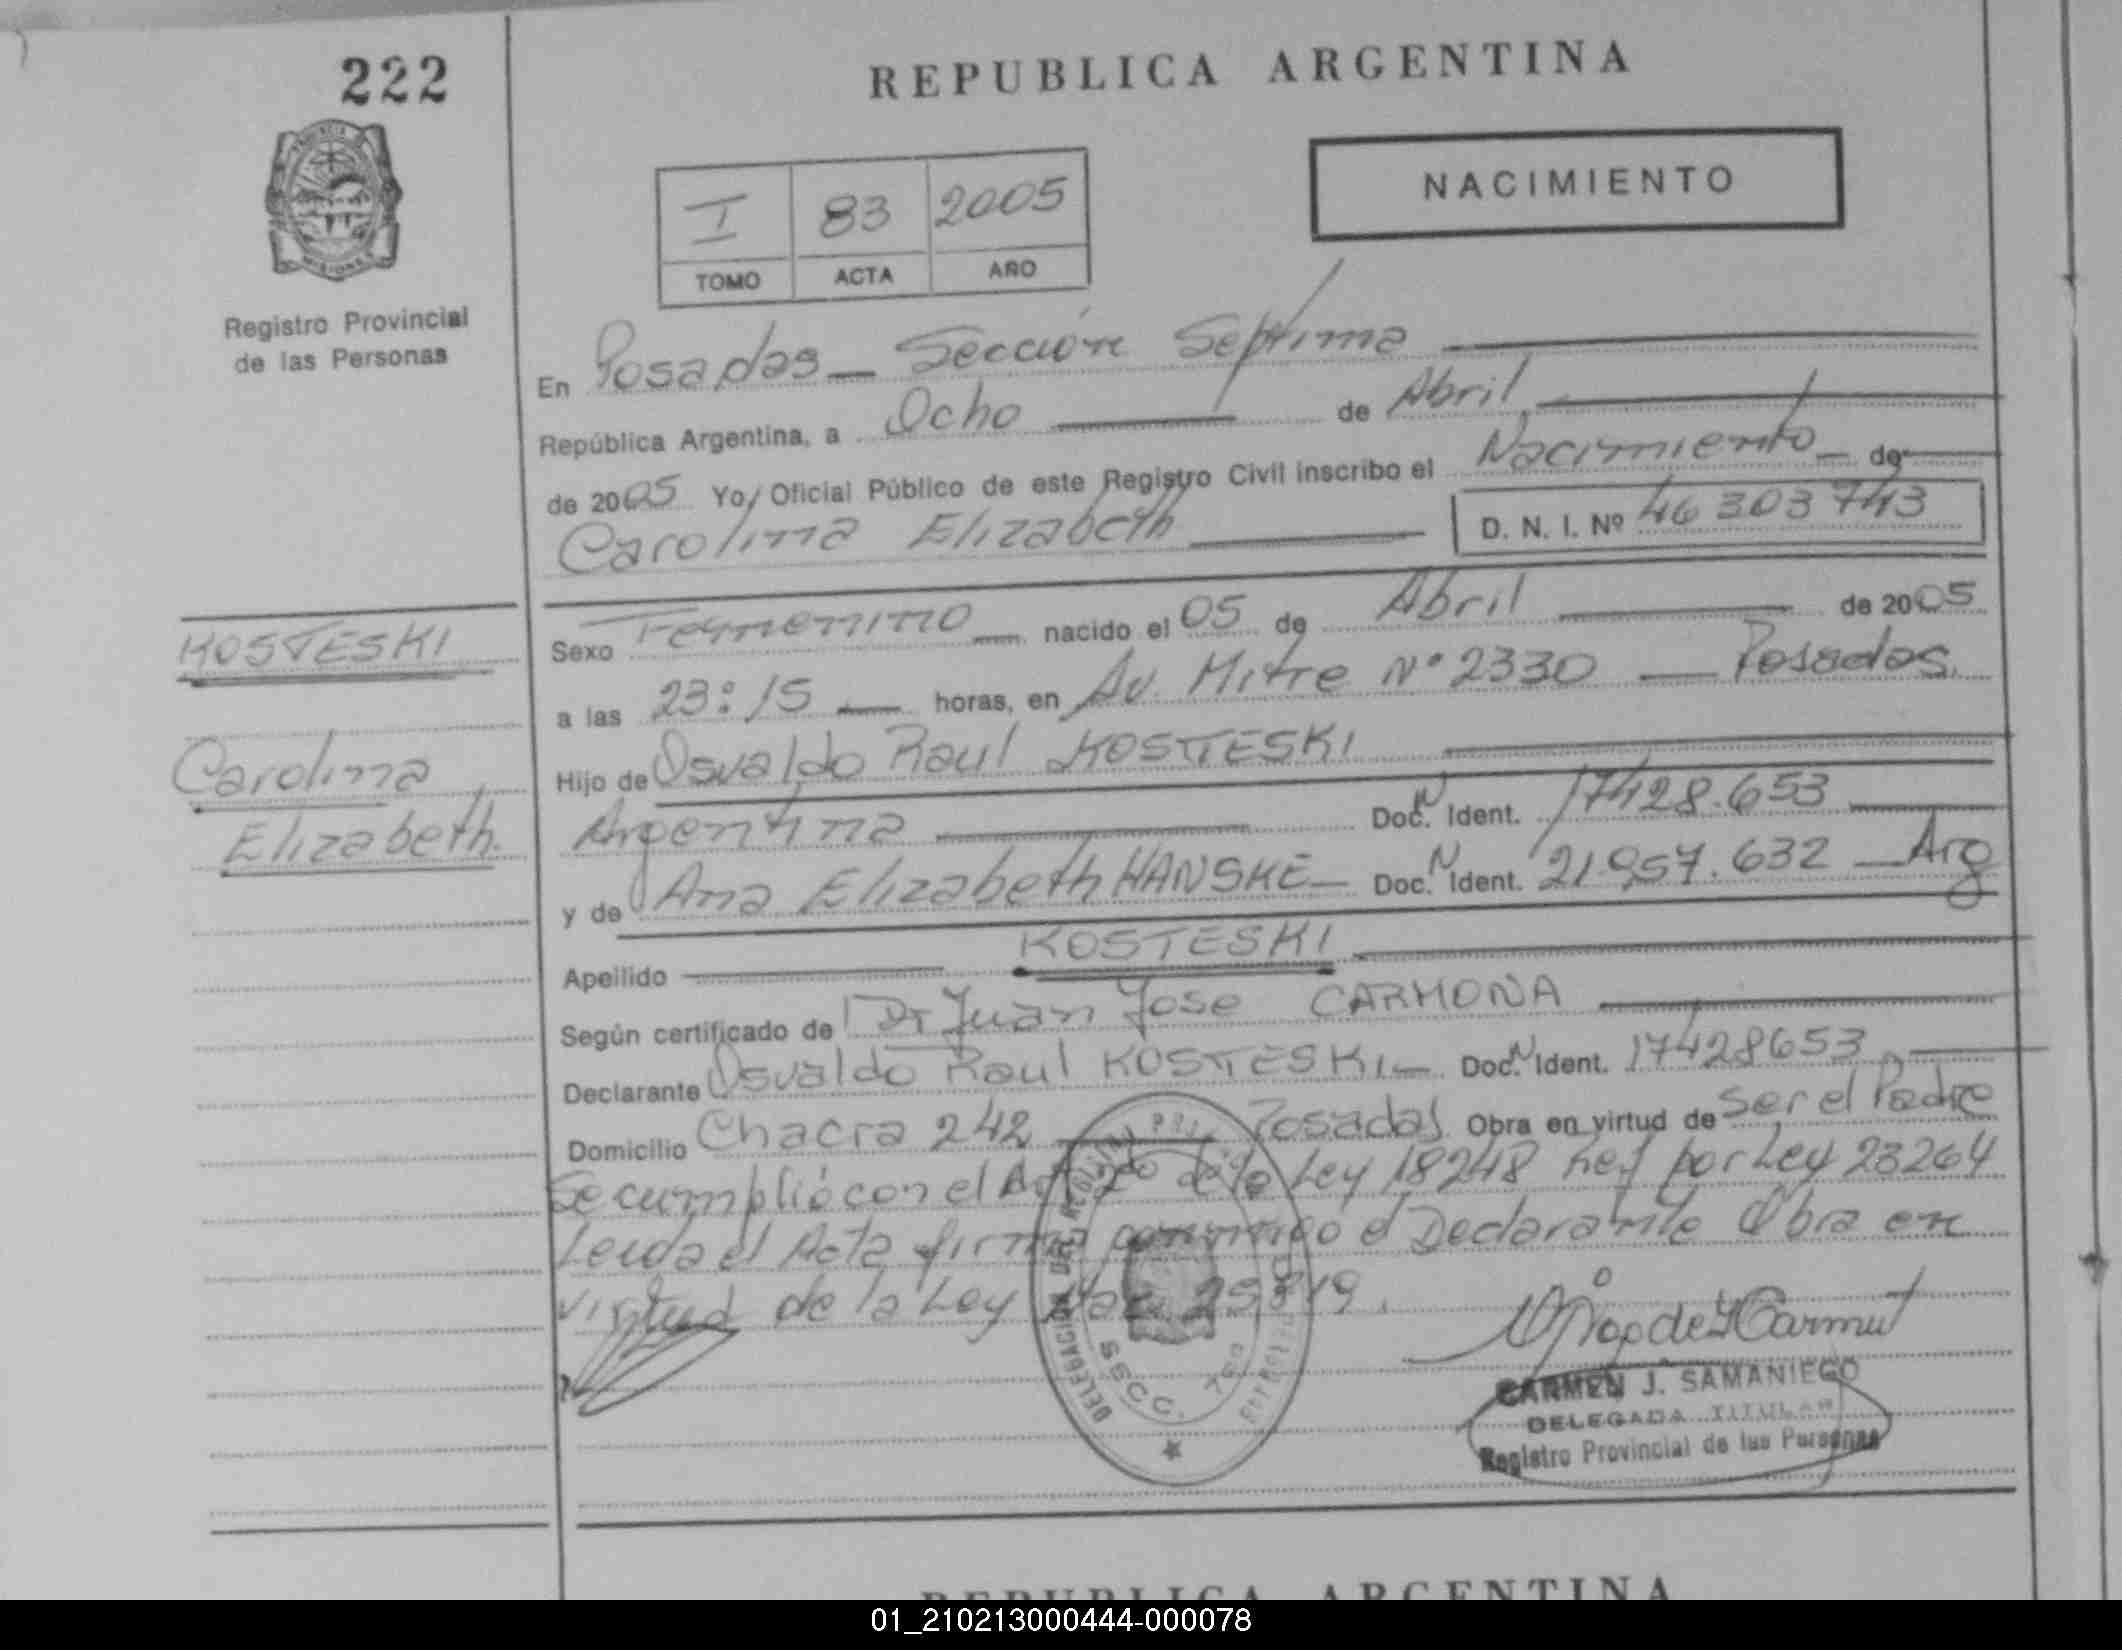 222
REPUBLICA ARGENTINA
PROVINCIA
MISIONES
Registro Provincial
de las Personas
I 83 2005
TOMO ACTA AÑO
NACIMIENTO
En Posadas — Sección Septima
República Argentina, a Ocho de Abril
de 2005 Yo, Oficial Público de este Registro Civil inscribo el Nacimiento de
Carolina Elizabeth D. N. I. Nº 46 303 743
KOSTESKI
Carolina
Elizabeth.
Sexo Femenino nacido el 05 de Abril de 2005
a las 23:15 horas, en Av. Mitre Nº 2330 — Posadas.
Hijo de Osvaldo Raul KOSTESKI
Argentina Doc. N Ident. 17428.653
y de Ana Elizabeth HANSKE — Doc. N Ident. 21.957.632 — Arg
Apellido KOSTESKI
Según certificado de Dr Juan Jose CARMONA
Declarante Osvaldo Raul KOSTESKI — Doc. N Ident. 17428653
Domicilio Chacra 242 Posadas Obra en virtud de Ser el Padre
Se cumplió con el Art de la Ley 18248 Ref por Ley 23264
Leida el Acta firma conmigo el Declarante Obra en
virtud de la Ley 25819.
DELEGACION DEL REGISTRO
SSCC. 7ma
CARMEN J. SAMANIEGO
DELEGADA TITULAR
Registro Provincial de las Personas
REPUBLICA ARGENTINA
01_210213000444-000078